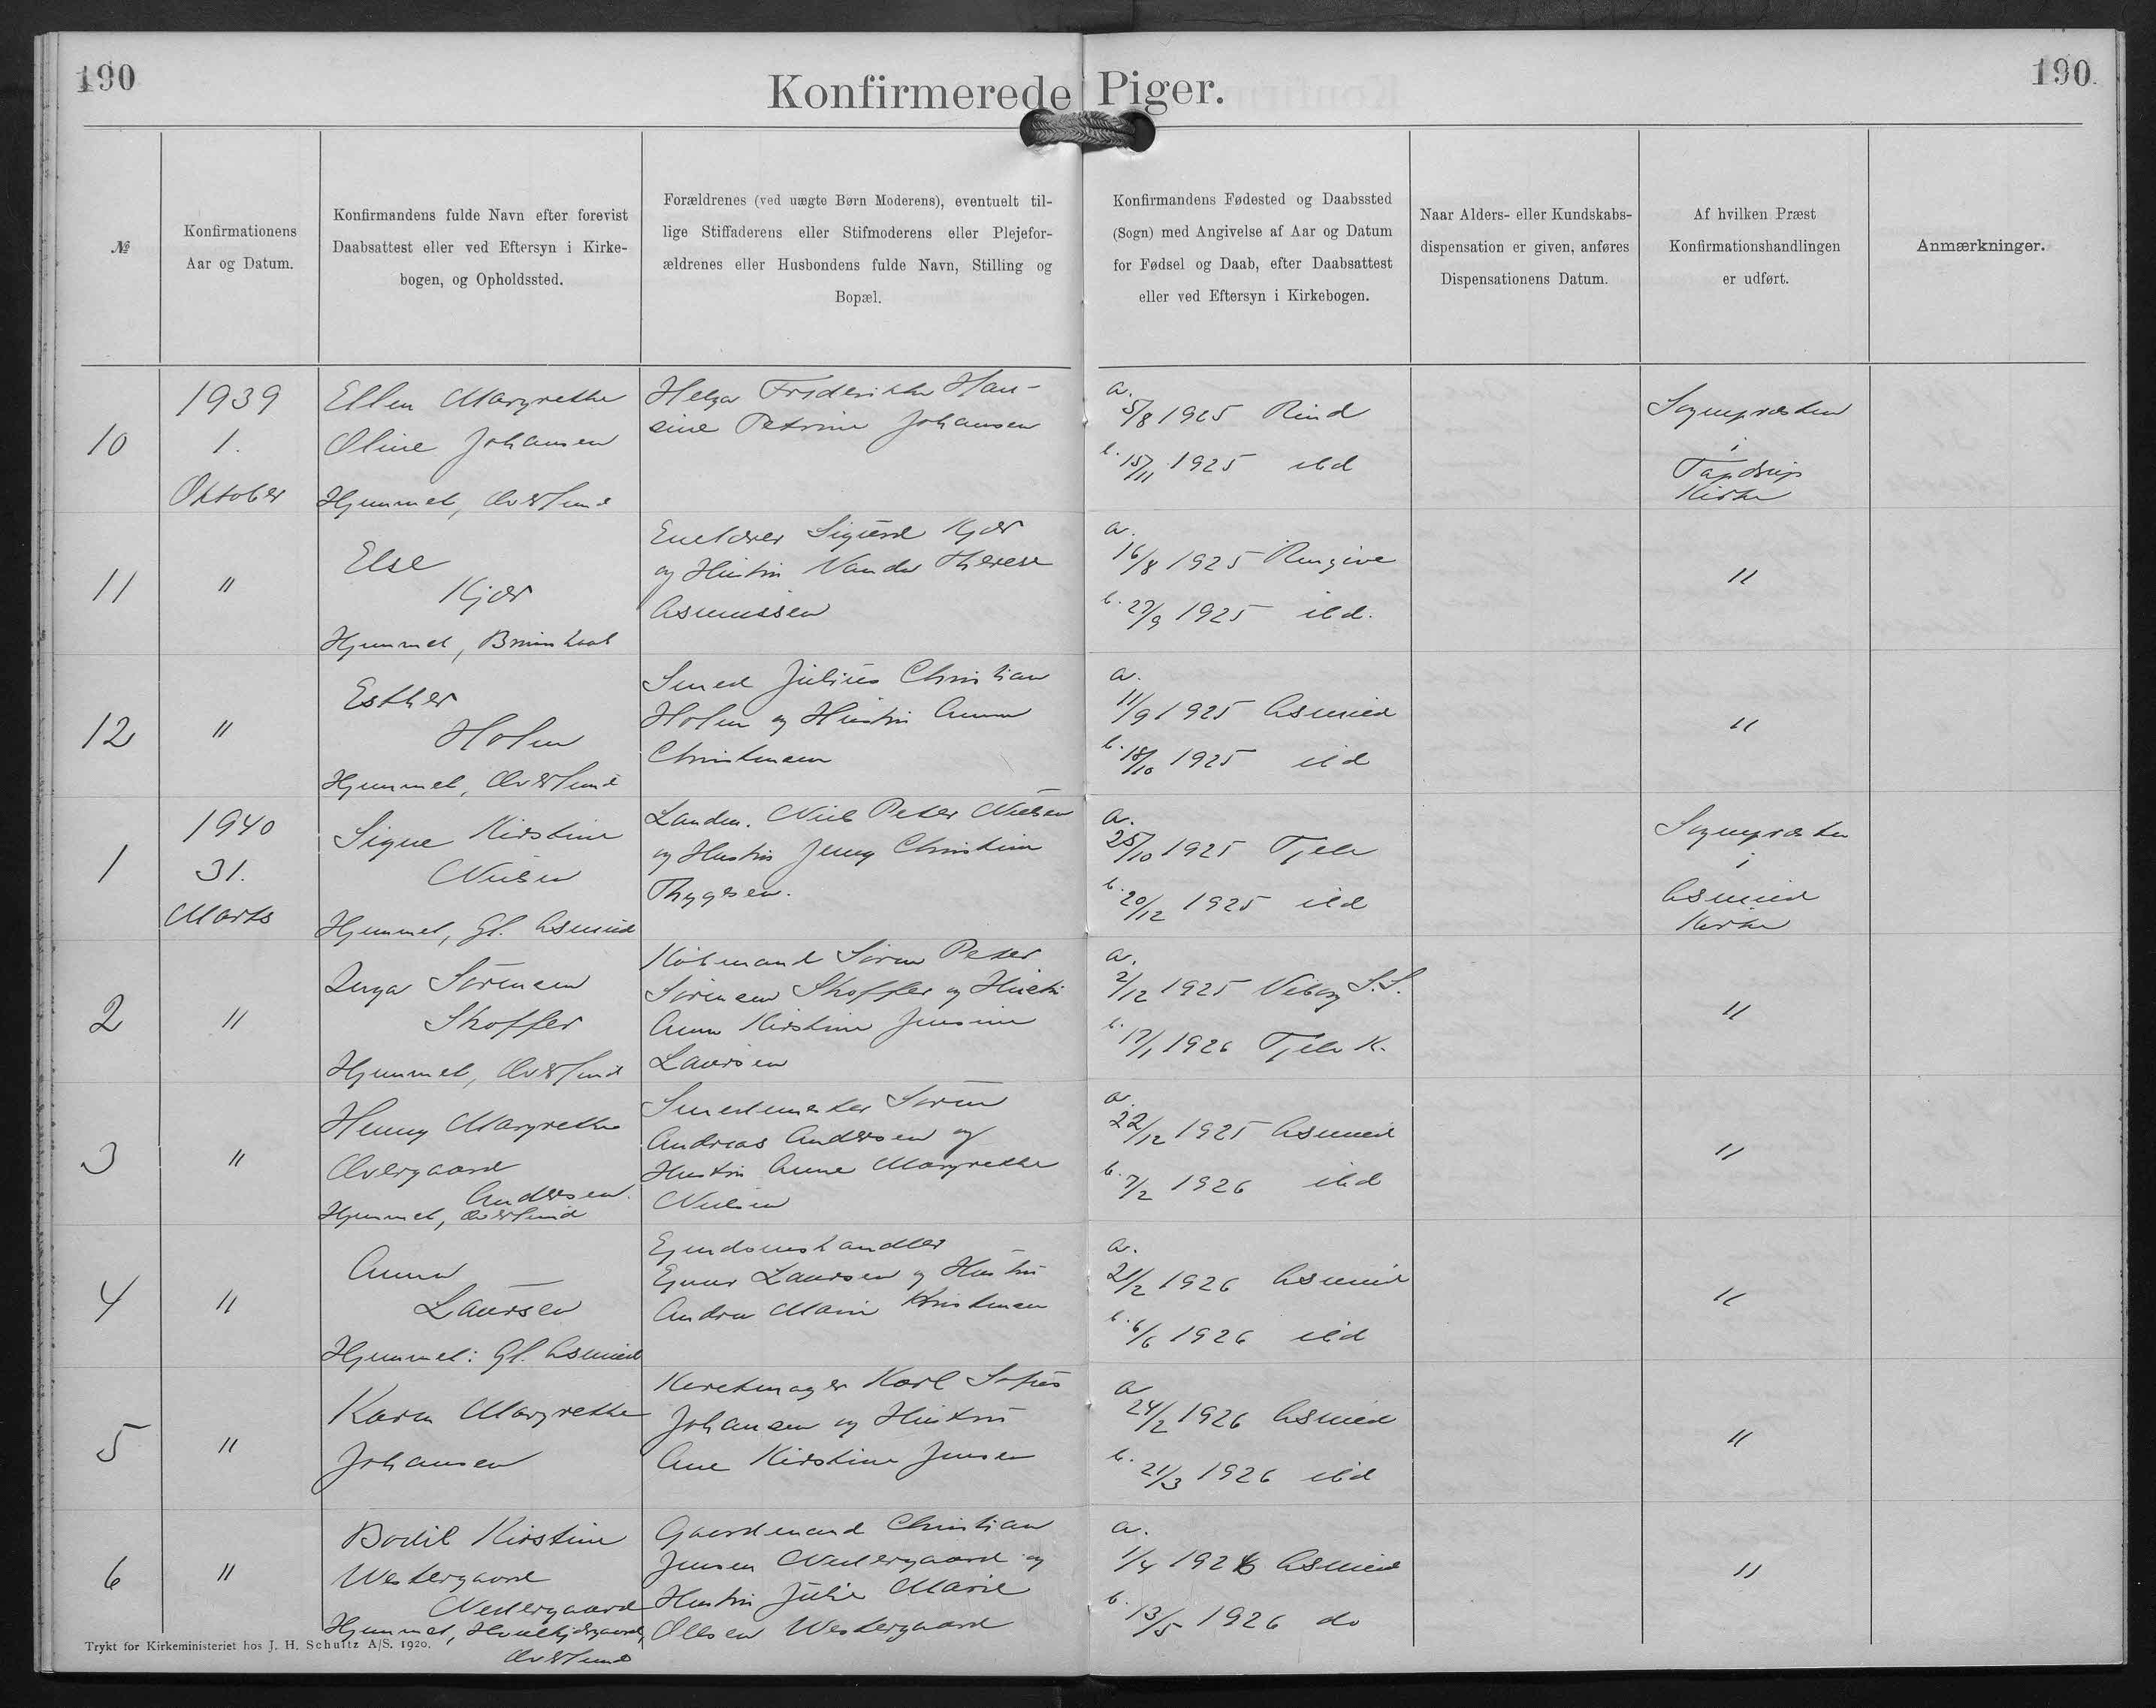 190
190.
Konfirmerede Piger.
№
Konfirmationens
Aar og Datum.
Konfirmandens fulde Navn efter forevist
Daabsattest eller ved Eftersyn i Kirke-
bogen, og Opholdssted.
Forældrenes (ved uægte Børn Moderens), eventuelt til-
lige Stiffaderens eller Stifmoderens eller Plejefor-
ældrenes eller Husbondens fulde Navn, Stilling og
Bopæl.
Konfirmandens Fødested og Daabssted
(Sogn) med Angivelse af Aar og Datum
for Fødsel og Daab, efter Daabsattest
eller ved Eftersyn i Kirkebogen.
Naar Alders- eller Kundskabs-
dispensation er given, anføres
Dispensationens Datum.
Af hvilken Præst
Konfirmationshandlingen
er udført.
Anmærkninger.
10
1939
1.
Oktober
Ellen Margrethe
Oline Johansen
Hjemmet, Øverlund
Helga Frederikke Han-
sine Petrine Johansen
a.
5/8 1925 Rind
b. 15/11 1925 ibd
Sognepræsten
i
Tapdrup
Kirke
11
"
Else
Kjær
Hjemmet,
Sigurd Kjær
og Hustru Vanda Therese
Asmussen
a.
16/8 1925 Ringive
b. 27/9 1925 ibd.
"
12
"
Esther
Holm
Hjemmet, Øverlund
Smed Julius Christian
Holm og Hustru Anna
Christensen
a.
11/9 1925 Asmild
b. 18/10 1925 ibd
"
1
1940
31.
Marts
Signe Kirstine
Nielsen
Hjemmet, Gl. Asmild
Landm. Niels Peter Nielsen
og Hustru Jenny Christine
Thygesen.
a.
25/10 1925 Tjele
b. 20/12 1925 ibd
Sognepræsten
i
Asmild
Kirke
2
"
Inga Sörensen
Skoffer
Hjemmet, Øverlund
Købmand Sören Peter
Sörensen Skoffer og Hustru
Anna Kirstine Jensine
Laursen
a.
2/12 1925 Viborg S.S.
b. 17/1 1926 Tjele K.
"
3
"
Henny Margrethe
Overgaard
Andersen.
Hjemmet, Øverlund
Smedemester Sören
Andreas Andersen og
Hustru Anne Margrethe
Nielsen
a.
22/12 1925 Asmild
b. 7/2 1926 ibd
"
4
"
Anna
Laursen
Hjemmet: Gl. Asmild
Ejendomshandler
Ejnar Laursen og Hustru
Andrea Marie Kristensen
a.
21/2 1926 Asmild
b. 6/6 1926 ibd
"
5
"
Karen Margrethe
Johansen
Karl Sofus
Johansen og Hustru
Ane Kirstine Jensen
a
24/2 1926 Asmild
b. 21/3 1926 ibd
"
6
"
Bodil Kirstine
Westergaard
Nedergaard
Hjemmet,
Øverlund
Gaardmand Christian
Jensen Nedergaard og
Hustru Julie Marie
Olesen Westergaard
a.
1/4 1926 Asmild
b. 13/5 1926 do
"
Trykt for Kirkeministeriet hos J. H. Schultz A/S. 1920.